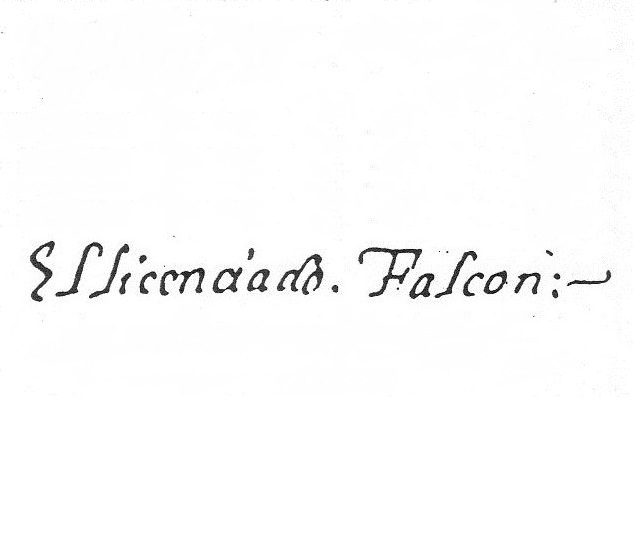 El licenciado. Falcon:~